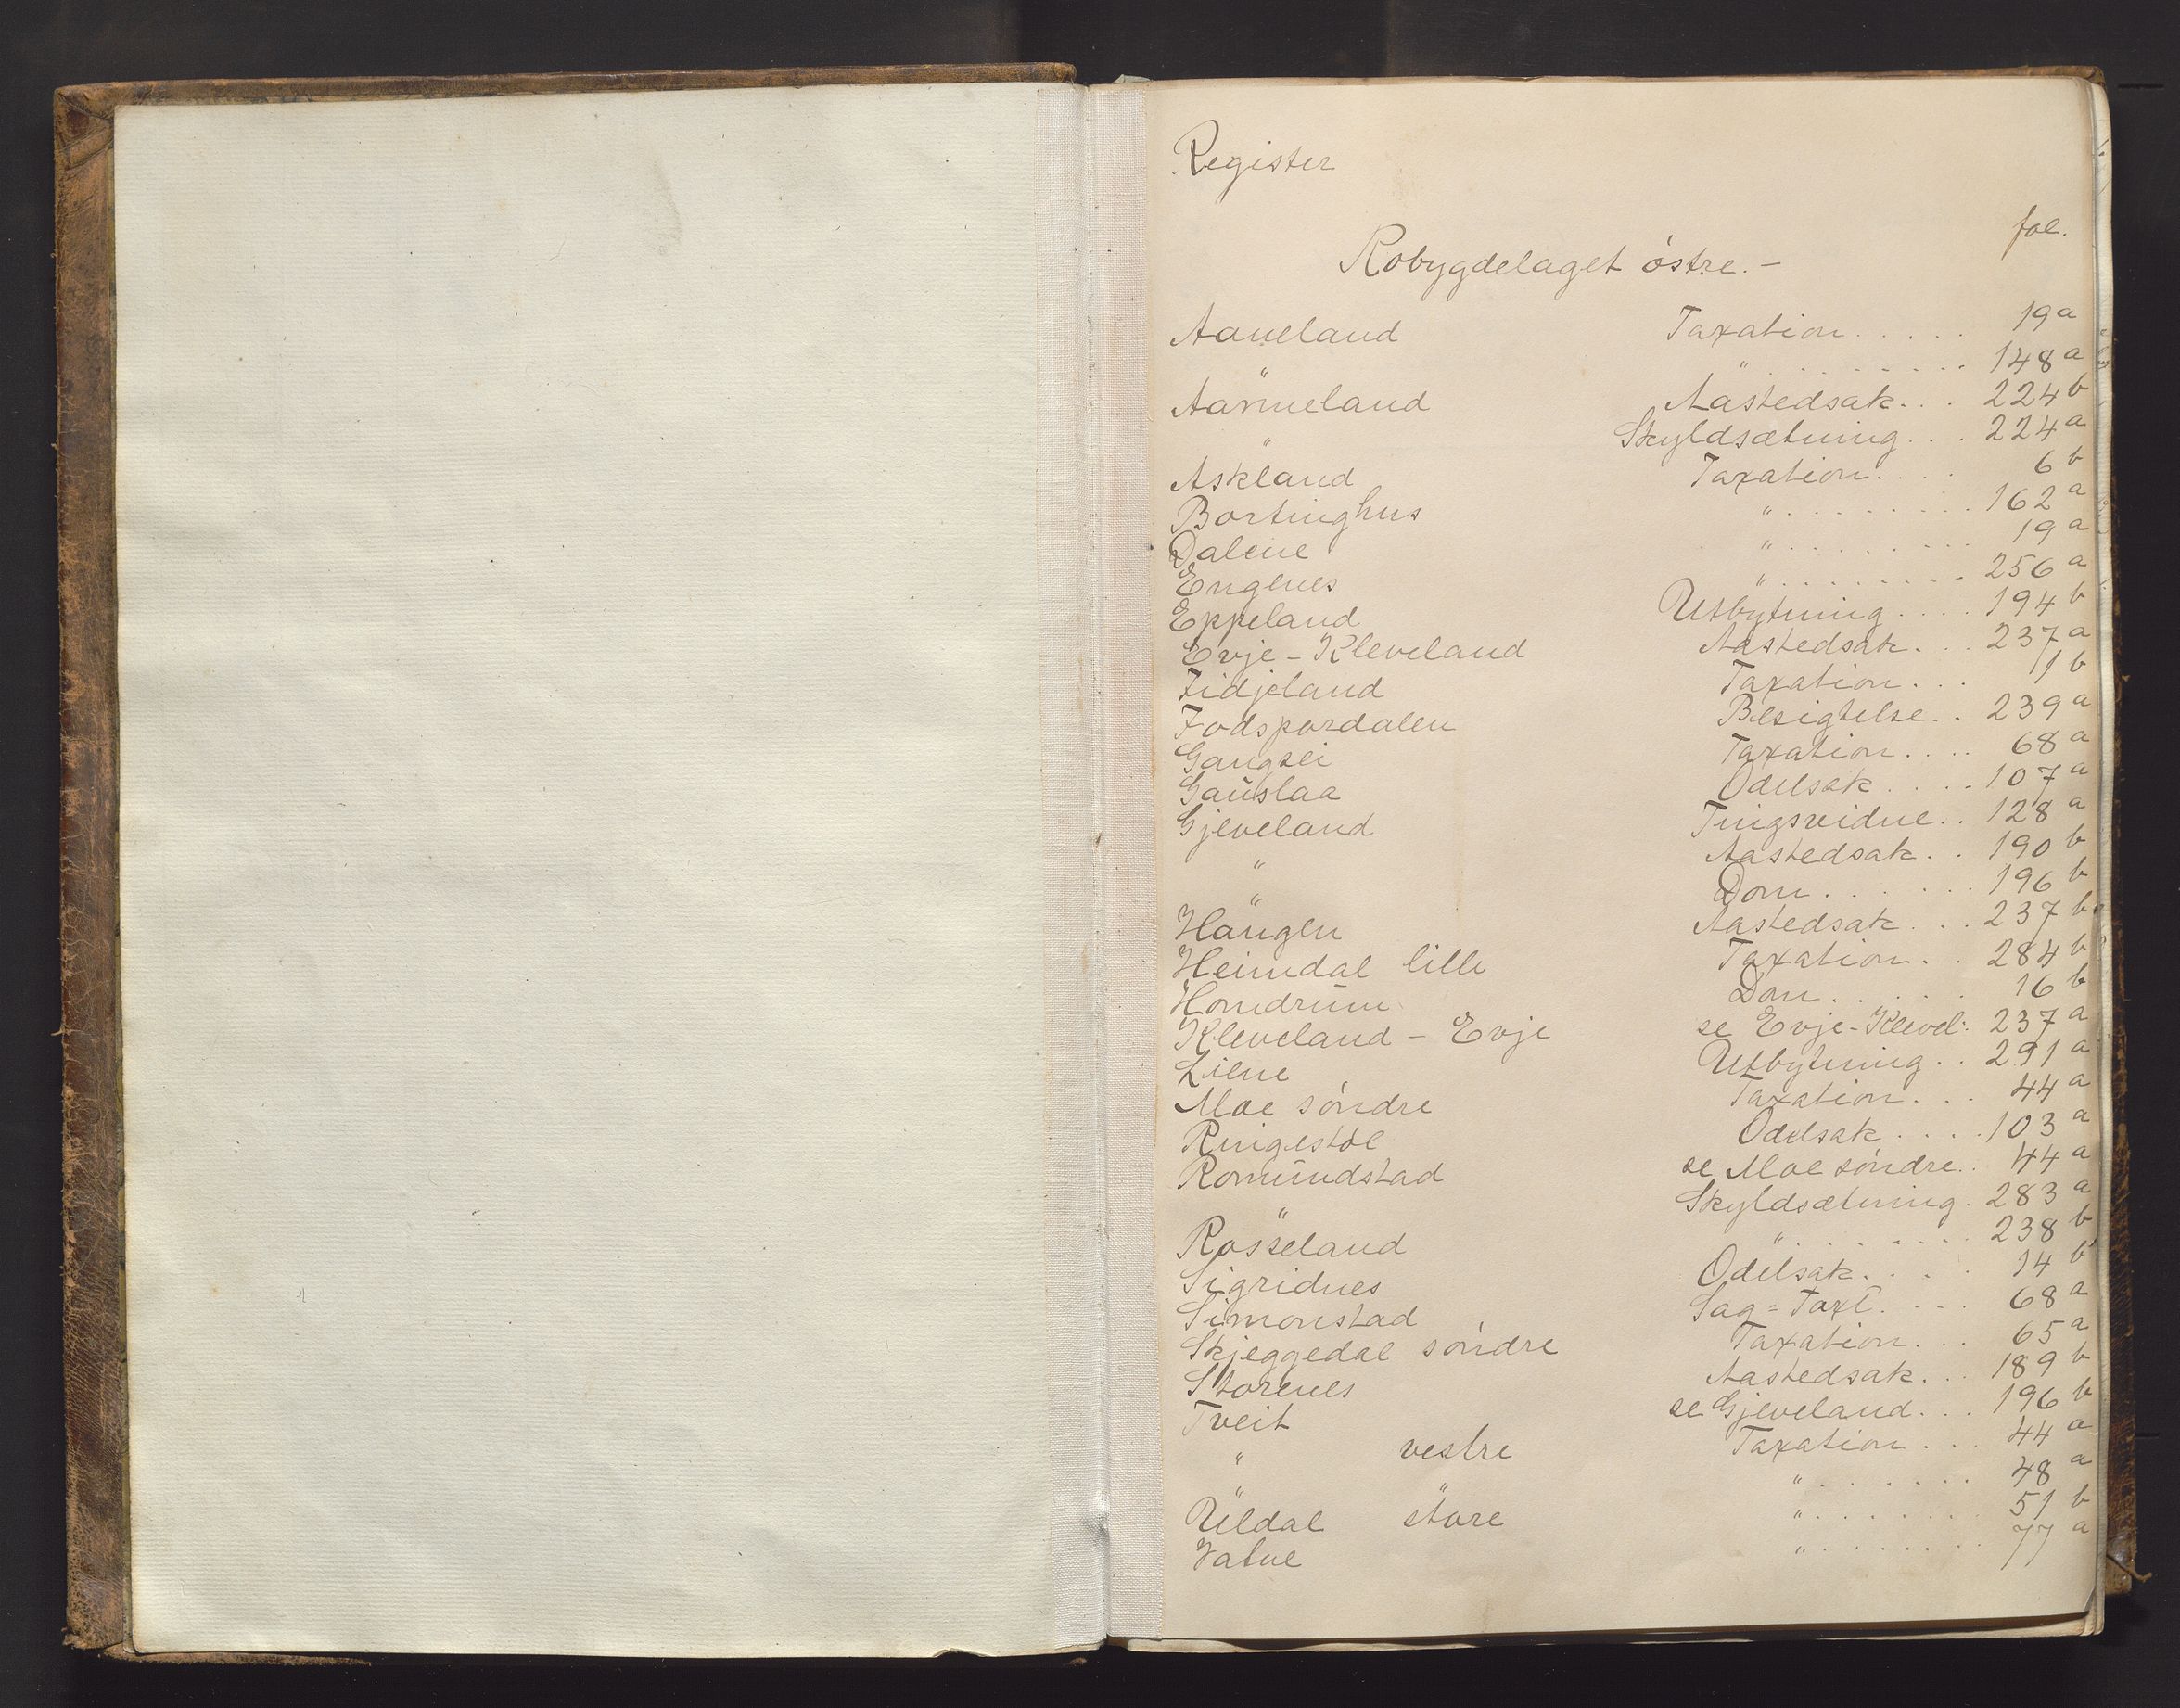 Register
fol.
Robygdelaget østre. –
Aaneland Taxation..... 19a
" "......... 148a
Aanneland Aastedsak... 224b
" Skyldsætning... 224a
Askland Taxation.... 6b
Bortinghus "......... 162a
Dalene "......... 19a
Engenes "......... 256a
Eppeland Utbytning.... 194b
Evje - Kleveland Aastedsak... 237a
Fidjeland Taxation... 1b
Fodspordalen Besigtelse.. 239a
Gangsei Taxation.... 68a
Gauslaa Odelsak..... 107a
Gjeveland Tingsvidne.. 128a
" Aastedsak.. 190b
" Dom...... 196b
Haugen Aastedsak... 237b
Heimdal lille Taxation.. 284b
Homdrum Dom..... 16b
Kleveland - Evje se Evje-Klevel: 237a
Liene Utbytning.. 291a
Moe søndre Taxation... 44a
Ringestøl Odelsak..... 103a
Romundstad se Moe søndre.. 44a
" Skyldsætning. 283a
Rosseland "........ 238b
Sigridnes Odelsak.... 14b
Simonstad Sag=Taxt.... 68a
Skjeggedal søndre Taxation... 65a
Storenes Aastedsak... 189b
Tveit se Gjeveland... 196b
" vestre Taxation... 44a
" " "....... 48a
Uldal store "........ 51b
Vatne "........ 77a